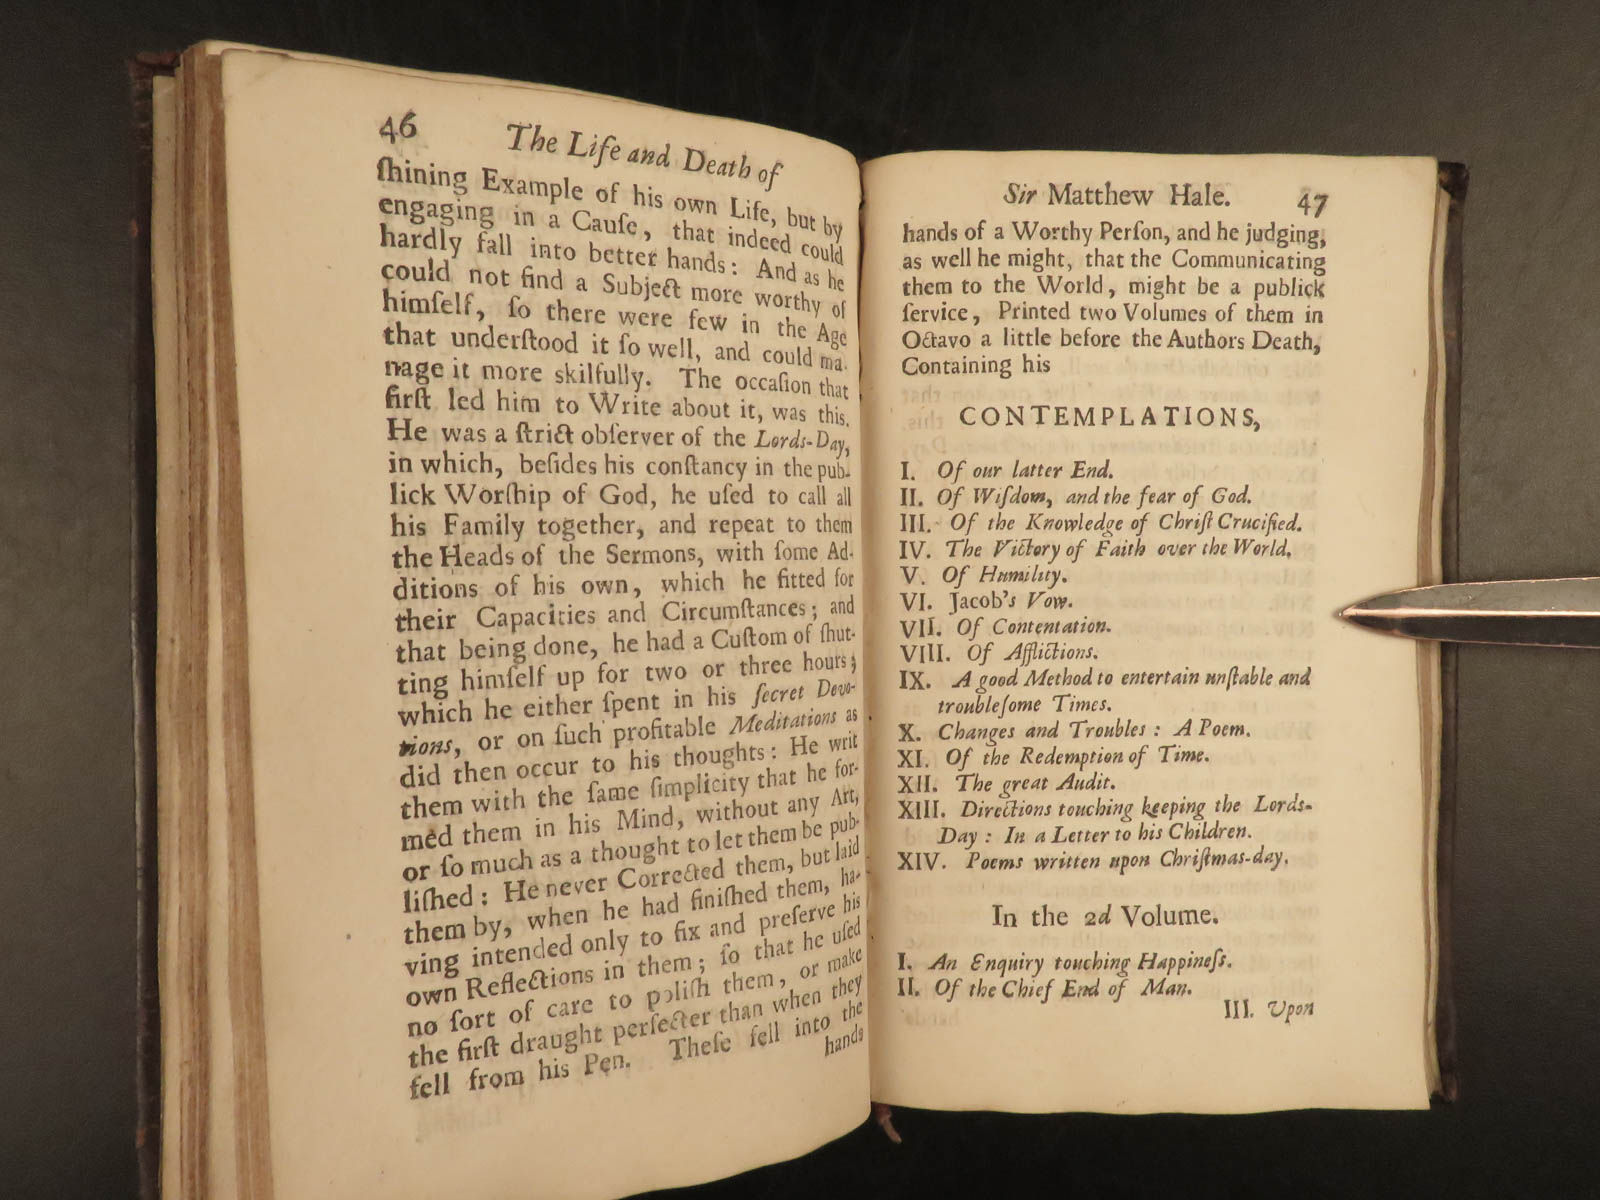 46
The Life and Death of
ſhining Example of his own Life, but by
engaging in a Cauſe, that indeed could
hardly fall into better hands: And as he
could not find a Subject more worthy of
himſelf, ſo there were few in the Age
that underſtood it ſo well, and could ma-
nage it more skilfully. The occaſion that
firſt led him to Write about it, was this.
He was a ſtrict obſerver of the Lords-Day,
in which, beſides his conſtancy in the pub-
lick Worſhip of God, he uſed to call all
his Family together, and repeat to them
the Heads of the Sermons, with ſome Ad-
ditions of his own, which he fitted for
their Capacities and Circumſtances; and
that being done, he had a Cuſtom of ſhut-
ting himſelf up for two or three hours;
which he either ſpent in his ſecret Devo-
tions, or on ſuch profitable Meditations as
did then occur to his thoughts: He writ
them with the ſame ſimplicity that he for-
med them in his Mind, without any Art,
or ſo much as a thought to let them be pub-
liſhed: He never Corrected them, but laid
them by, when he had finiſhed them, ha-
ving intended only to fix and preſerve his
own Reflections in them; ſo that he uſed
no ſort of care to poliſh them, or make
the firſt draught perfecter than when they
fell from his Pen. Theſe fell into the
hands
Sir Matthew Hale. 47
hands of a Worthy Perſon, and he judging,
as well he might, that the Communicating
them to the World, might be a publick
ſervice, Printed two Volumes of them in
Octavo a little before the Authors Death,
Containing his
CONTEMPLATIONS,
I. Of our latter End.
II. Of Wiſdom, and the fear of God.
III. Of the Knowledge of Chriſt Crucified.
IV. The Victory of Faith over the World.
V. Of Humility.
VI. Jacob's Vow.
VII. Of Contentation.
VIII. Of Afflictions.
IX. A good Method to entertain unſtable and
troubleſome Times.
X. Changes and Troubles: A Poem.
XI. Of the Redemption of Time.
XII. The great Audit.
XIII. Directions touching keeping the Lords-
Day: In a Letter to his Children.
XIV. Poems written upon Chriſtmas-day.
In the 2d Volume.
I. An Enquiry touching Happineſs.
II. Of the Chief End of Man.
III. Upon